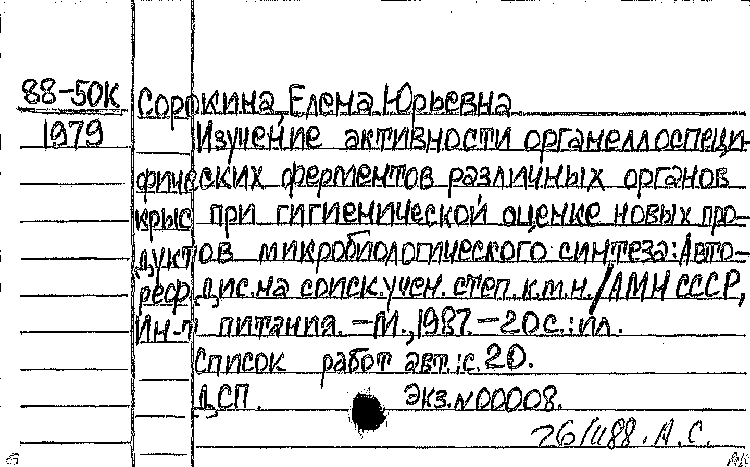 88-50К Сорокина, Елена Юрьевна
1979 Изучение активности органеллоспеци-
фических ферментов различных органов
крыс при гигиенической оценке новых про-
дуктов микробиологического синтеза: Авто-
реф. дис. на соиск. учен. степ. к.м.н. / АМН СССР,
Ин-т питания. - М., 1987. - 20 с.: ил.
Список работ авт.: с. 20.
ДСП. Экз. N 00008.
А.С.